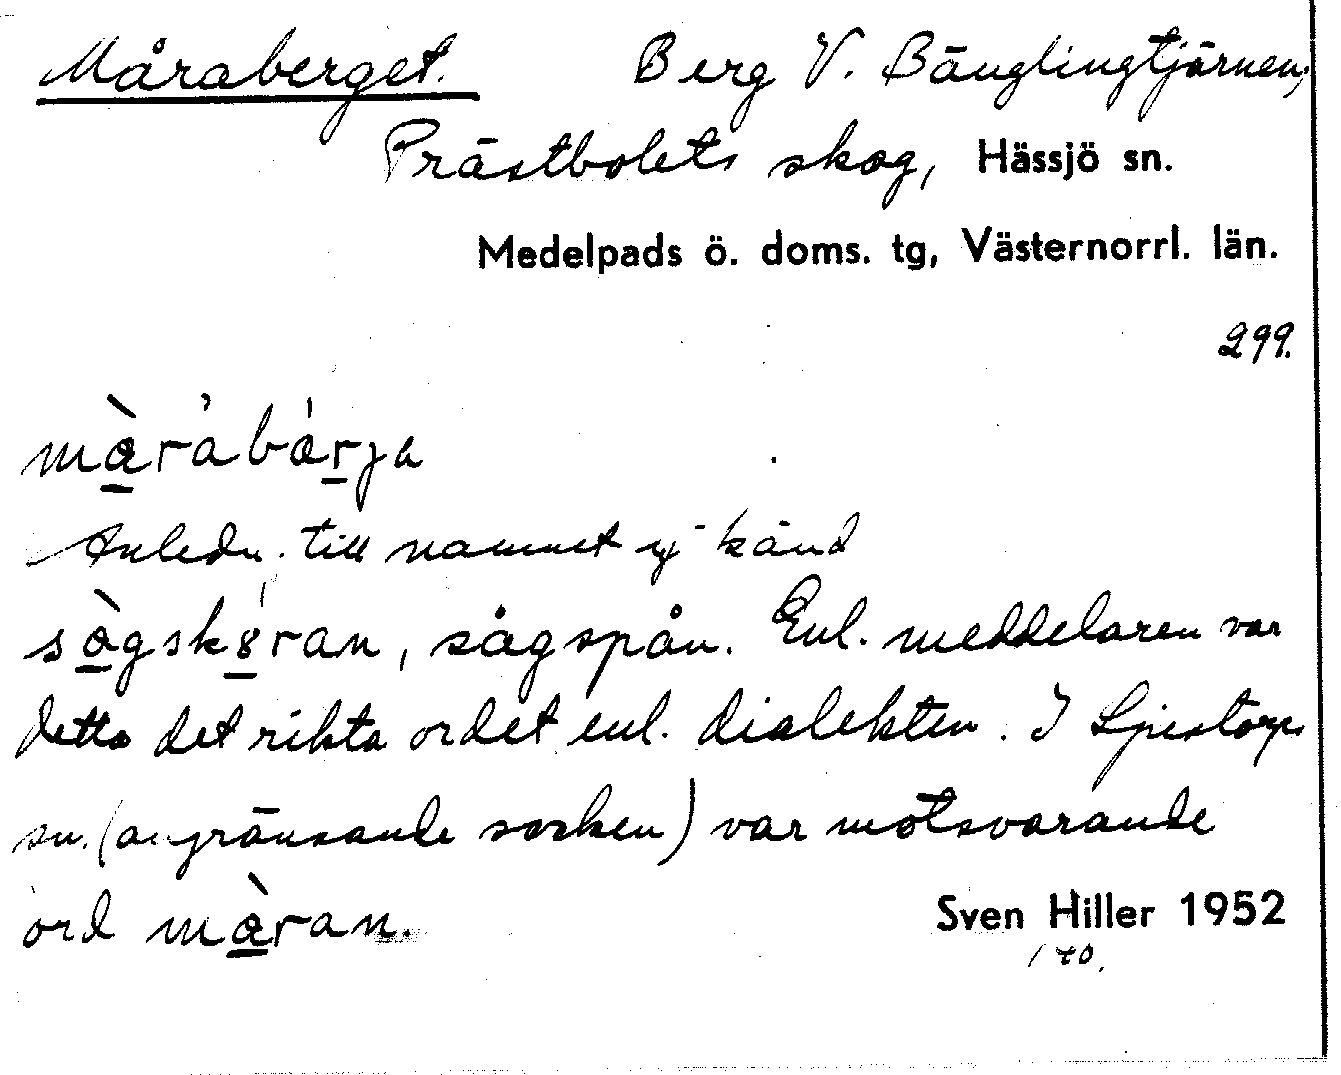 Måraberget. Berg V. Bänglingtjärnen,
Prästbolets skog, Hässjö sn.
Medelpads ö. doms. tg, Västernorrl. län.
299.
màrabárja
Anledn. till namnet ej känd
sàgskøran, sågspån. Enl. meddelaren var
detta det rikta ordet enl. dialekten. I Ljustorps
sn. (angränsande socken) var motsvarande
ord màran.
Sven Hiller 1952